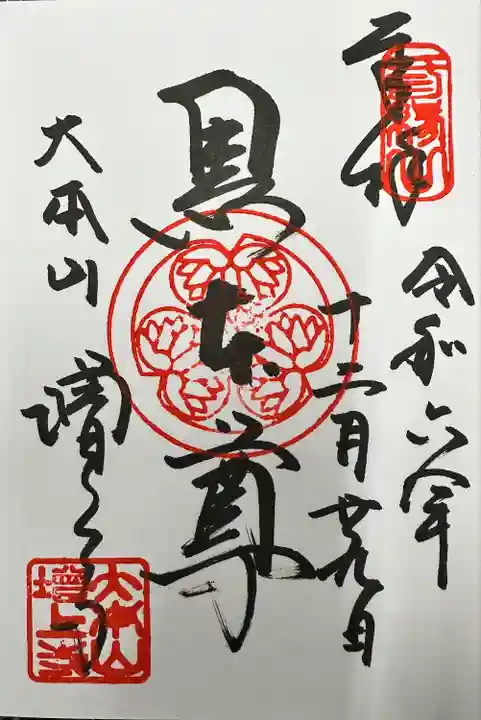 奉拝
三縁山
令和六年
十二月廿九日
黒本尊
大本山 増上寺
大本山
増上寺